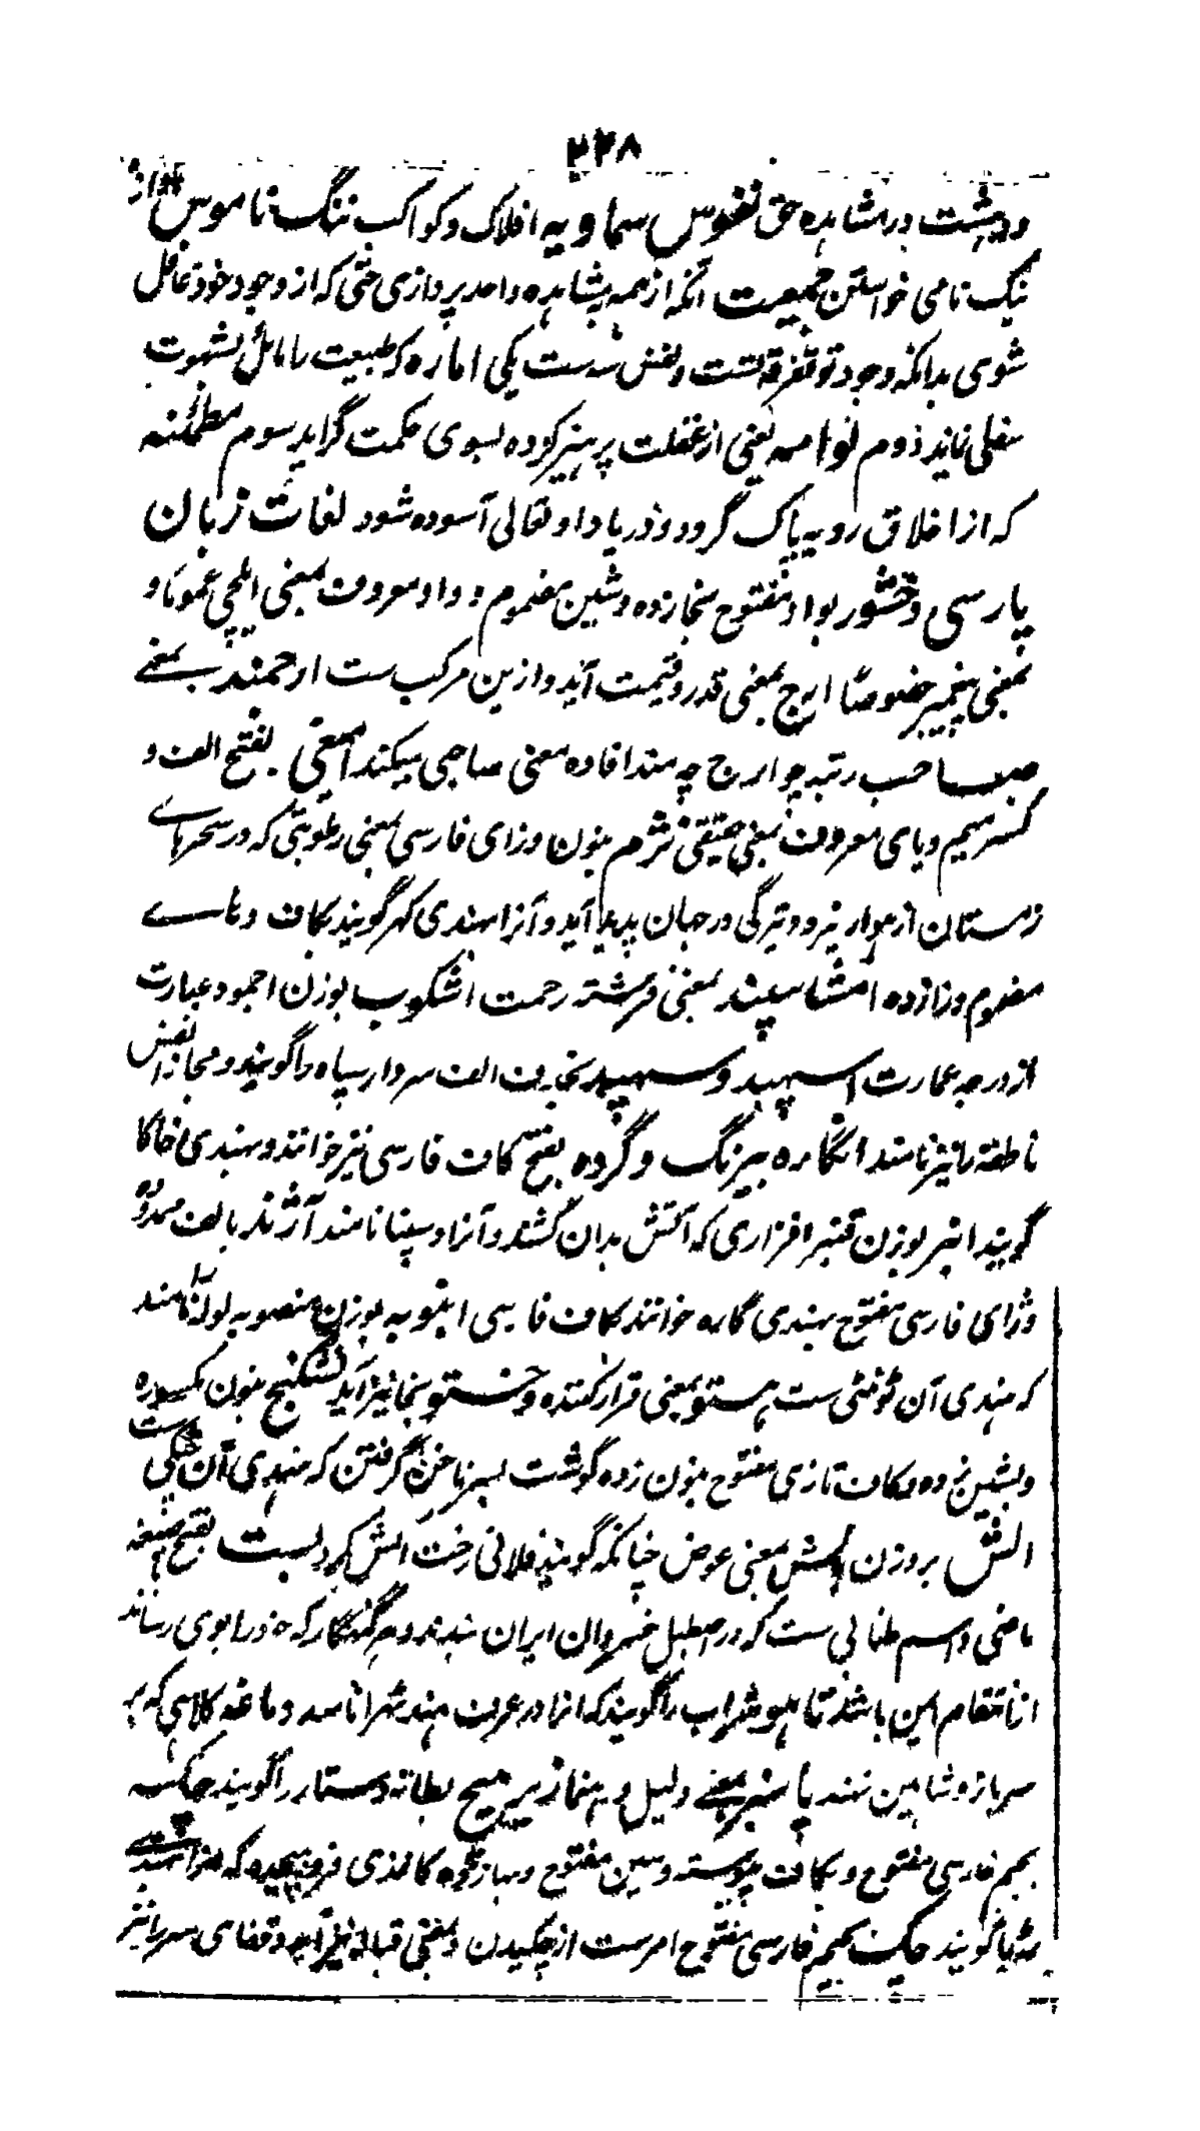 ۲۳۸
و دهشت در مشاهده حق نفوس سماویه افلاک و کواکب ننگ ناموس
نیک نامی خواستن جمعیت آنکه از همه بمشاهده واحد پردازی حتی که از وجود خود غافل
شوی بدانکه وجود تو تفرقه تست و نفس سه ست یکی اماره که طبیعت را مائل بشهوت
سفلی نماید دوم لوامه یعنی از غفلت پرهیز کرده بسوی حکمت گراید سوم مطمئنه
که از اخلاق رویه پاک گردد و در یاد او تعالی آسوده شود لغات زبان
پارسی وخشور بواو مفتوح بخا زده و شین مضموم و واو معروف بمعنی ایلچی عموماً و
بمعنی پیغمبر خصوصاً ارج بمعنی قدر و قیمت آید و ازین مرکب ست ارجمند بمعنی
صاحب رتبه چو ارج چه مند افاده معنی صاحبی میکند آمیغی بفتح الف و
کسر میم و یای معروف بمعنی حقیقی نژم بنون و زای فارسی بمعنی رطوبتی که در سحرهای
زمستان از هوا ریزد و تیرگی در جهان پدید آید و آنرا بهندی کهر گویند بکاف و های
مضموم و را زده امشاسپند بمعنی فرشته رحمت اشکوب بوزن اجود عبارت
از درجه عمارت اسپهبد و سپهبد بحذف الف سردار سپاه را گویند و مجازاً نفس
ناطقه را نیز نامند انگاره بیرنگ و گرده بفتح کاف فارسی نیز خوانند و بهندی خاکا
گویند انبر بوزن قنبر افزاری که آتش بدان کشند و آنرا دسپنا نامند آژند بالف ممدوده
وژای فارسی مفتوح بهندی گاره خوانند بکاف فارسی انبوبه بوزن منصوبه لوله را نامند
که هندی آن ٹونٹی ست هستو بمعنی قرار کننده و خستو بخا نیز آید نشکنج بنون مکسوره
و بشین زده و کاف تازی مفتوح بنون زده گوشت بسر ناخن گرفتن که هندی آن چٹکی ست
الش بروزن معنی عوض چنانکه گویند فلانی رخت الش کرد بست بفتح صیغه
ماضی و اسم طنابی ست که در اصطبل خسروان ایران بندند و هر گنهگار که خود را بوی رساند
از انتقام ایمن باشد تاهو شراب را گویند که آنرا در عرف هند ٹهرا نامند و ماغو کلاهی که بر
سر باز و شاهین نهند پاسبز بمعنی دلیل و رهنما زیرپیچ بطانه دستار را گویند چکسه
بجیم فارسی مفتوح و بکاف پیوسته و سین مفتوح و بها زده کاغذی فروپیچیده که آنرا بهندی
پڑیا گویند چک بجیم فارسی مفتوح امر ست از چکیدن و بمعنی قباله نیز آید و قفای سر را نیز